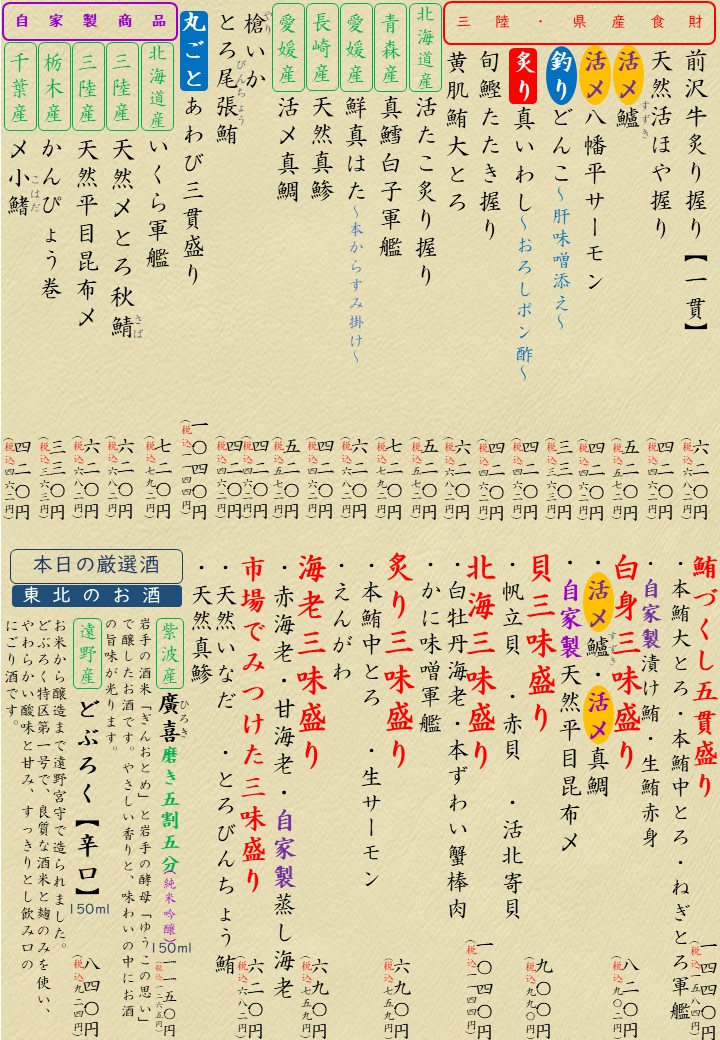 三陸・県産食財
前沢牛炙り握り【一貫】 六二〇円 (税込六八二円)
天然活ほや握り 四二〇円 (税込四六二円)
活〆鱸 すずき 五二〇円 (税込五七二円)
活〆八幡平サーモン 四二〇円 (税込四六二円)
釣りどんこ〜肝味噌添え〜 三三〇円 (税込三六三円)
炙り真いわし〜おろしポン酢〜 四二〇円 (税込四六二円)
旬鰹たたき握り 四二〇円 (税込四六二円)
黄肌鮪大とろ 六二〇円 (税込六八二円)
北海道産 活たこ炙り握り 五二〇円 (税込五七二円)
青森産 真鱈白子軍艦 七二〇円 (税込七九二円)
愛媛産 鮮真はた〜本からすみ掛け〜 六二〇円 (税込六八二円)
長崎産 天然真鯵 四二〇円 (税込四六二円)
愛媛産 活〆真鯛 五二〇円 (税込五七二円)
槍いか やり 四二〇円 (税込四六二円)
とろ尾張鮪 びんちょう 四二〇円 (税込四六二円)
丸ごとあわび三貫盛り 一〇四〇円 (税込一一四四円)
自家製商品
北海道産 いくら軍艦 七二〇円 (税込七九二円)
三陸産 天然〆とろ秋鯖 さば 六二〇円 (税込六八二円)
三陸産 天然平目昆布〆 六二〇円 (税込六八二円)
栃木産 かんぴょう巻 三三〇円 (税込三六三円)
千葉産 〆小鰭 こはだ 四二〇円 (税込四六二円)
鮪づくし五貫盛り 一四四〇円
・本鮪大とろ・本鮪中とろ・ねぎとろ軍艦
・自家製漬け鮪・生鮪赤身
白身三味盛り 八二〇円 (税込九〇二円)
・活〆鱸 すずき・活〆真鯛
・自家製天然平目昆布〆
貝三味盛り 九〇〇円 (税込九九〇円)
・帆立貝 ・赤貝 ・活北寄貝
北海三味盛り 一〇四〇円 (税込一一四四円)
・白牡丹海老・本ずわい蟹棒肉
・かに味噌軍艦
炙り三味盛り 六九〇円 (税込七五九円)
・本鮪中とろ ・生サーモン
・えんがわ
海老三味盛り 六九〇円 (税込七五九円)
・赤海老・甘海老・自家製蒸し海老
市場でみつけた三味盛り 六二〇円 (税込六八二円)
・天然いなだ ・とろびんちょう鮪
・天然真鯵
本日の厳選酒
東北のお酒
紫波産 廣喜 ひろき 磨き五割五分(純米吟醸) 150ml 一一五〇円 (税込一二六五円)
岩手の酒米「ぎんおとめ」と岩手の酵母「ゆうこの思い」
で醸したお酒です。やさしい香りと、味わいの中にお酒
の旨味が光ります。
遠野産 どぶろく【辛口】 150ml 八四〇円 (税込九二四円)
お米から醸造まで遠野宮守で造られました。
どぶろく特区第一号で、良質な酒米と麹のみを使い、
やわらかい酸味と甘み、すっきりとし飲み口の
にごり酒です。